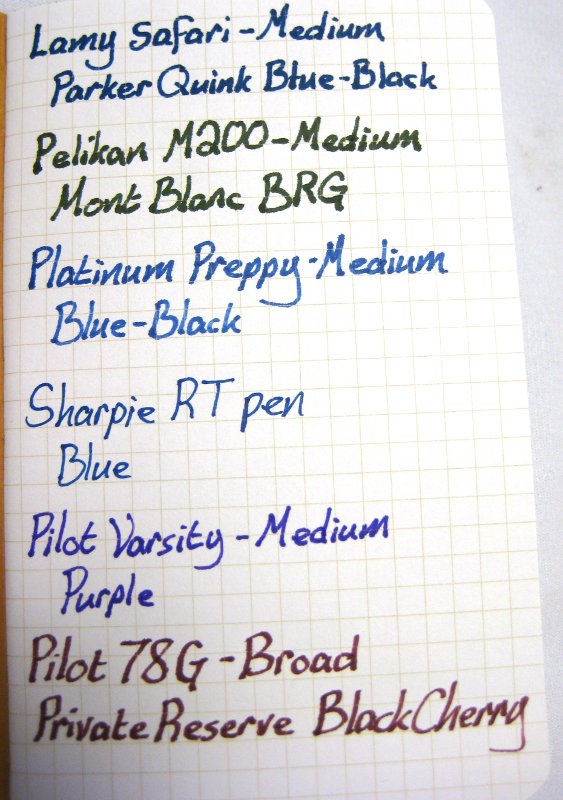 Lamy Safari - Medium
Parker Quink Blue-Black
Pelikan M200-Medium
Mont Blanc BRG
Platinum Preppy-Medium
Blue-Black
Sharpie RT pen
Blue
Pilot Varsity - Medium
Purple
Pilot 78G - Broad
Private Reserve Black Cherry